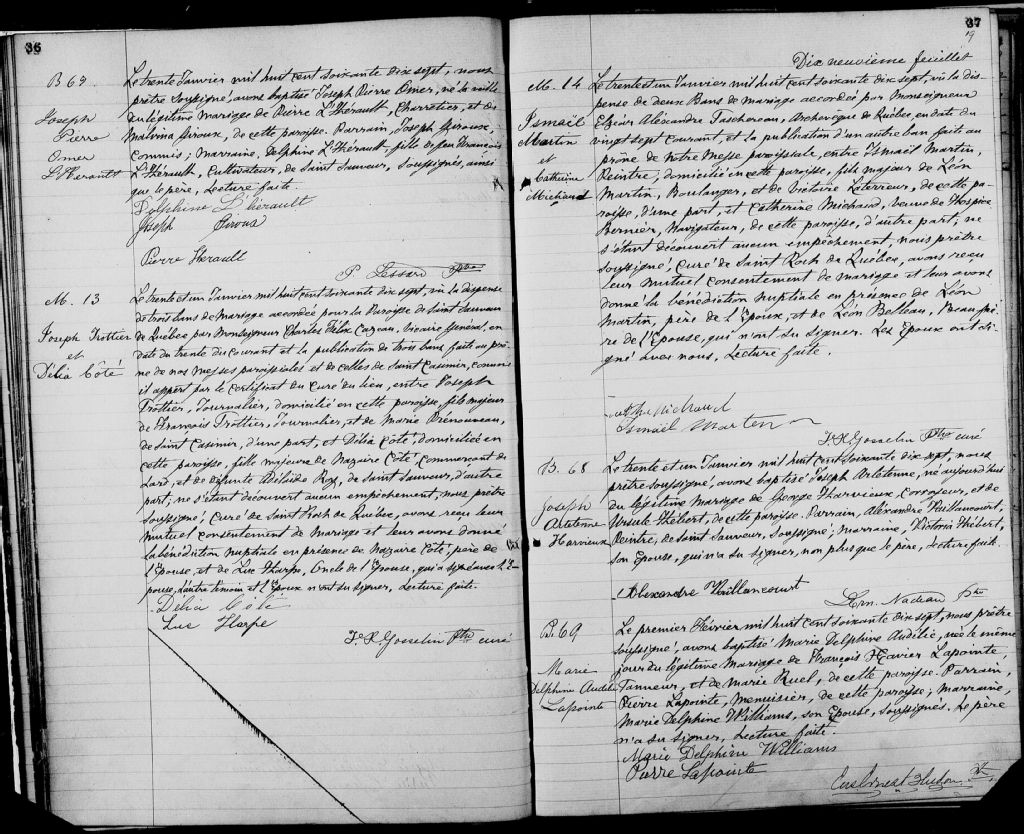 36
B 69
Joseph
Pierre
Omer
L'Herault
Le trente Janvier mil huit cent soixante dix sept, nous
prêtre soussigné avons baptisé Joseph Pierre Omer, né la veille
du légitime mariage de Pierre L'Hérault, Charretier, et de
Malvina Giroux, de cette paroisse. Parrain, Joseph Giroux,
commis; Marraine, Delphine L'Hérault, fille de feu François
L'Hérault, Cultivateur, de Saint Sauveur, soussignés, ainsi
que le père, Lecture faite.
Delphine L'hérault
Joseph Giroux
Pierre Herault
P. Lessard Ptre
M. 13
Joseph Trottier
et
Délia Côté
Le trente et un Janvier mil huit cent soixante dix sept, vu la dispense
de trois bans de Mariage accordée pour la Paroisse de Saint Sauveur
de Québec par Monseigneur Charles Félix Cazeau, Vicaire Général, en
date du trente du courant et la publication de trois bans faite au prô-
ne de nos Messes paroissiales et de celles de Saint Casimir, comme
il appert par le certificat du Curé du lieu, entre Joseph
Trottier, Journalier, domicilié en cette paroisse, fils majeur
de François Trottier, Journalier, et de Marie
de Saint Casimir, d'une part, et Délia Côté, domiciliée en
cette paroisse, fille majeure de Nazaire Côté, Commerçant de
Lard, et de défunte Adélaïde Roy, de Saint Sauveur, d'autre
part; ne s'étant découvert aucun empêchement, nous prêtre
soussigné, Curé de Saint Roch de Québec, avons reçu leur
mutuel consentement de Mariage et leur avons donné
la bénédiction nuptiale en présence de Nazaire Côté, père de
l'Epouse, et de Luc Tharpe, Oncle de l'Epouse, qui a signé avec l'E-
pouse, l'autre témoin et l'Epoux n'ont su signer, Lecture faite.
Délia Côté
Luc Harpe
F. X. Gosselin Ptre curé
37
19
Dix neuvième feuillet
M. 14
Ismaël
Martin
et
Catherine
Michaud
Le trente et un Janvier mil huit cent soixante dix sept, vu la dis-
pense de deux Bans de mariage accordée par Monseigneur
Elzéar Alexandre Taschereau, Archevêque de Québec, en date du
vingt sept courant, et la publication d'un autre ban faite au
prône de notre Messe paroissiale, entre Ismaël Martin,
Peintre, domicilié en cette paroisse, fils majeur de Léon
Martin, Boulanger, et de Victoire Laterrieur, de cette pa-
roisse, d'une part, et Catherine Michaud, veuve de Hospice
Bernier, Navigateur, de cette paroisse, d'autre part; ne
s'étant découvert aucun empêchement, nous prêtre
soussigné, Curé de Saint Roch de Québec, avons reçu
leur mutuel consentement de mariage et leur avons
donné la bénédiction nuptiale en présence de Léon
Martin, père de l'Epoux, et de Léon Belleau, Beau frè-
re de l'Epouse, qui n'ont su signer. Les Epoux ont si-
gné avec nous, Lecture faite.
Cath Michaud
Ismaël Marten
F. X. Gosselin Ptre curé
B. 68
Joseph
Artetenne
Harvieux
Le trente et un Janvier mil huit cent soixante dix sept, nous
prêtre soussigné, avons baptisé Joseph Artetenne, né aujourd'hui
du légitime Mariage de George Harvieux, Corroyeur, et de
Ursule Hébert, de cette paroisse. Parrain, Alexandre Vaillancourt,
Peintre, de Saint Sauveur, soussigné; marraine, Victoria Hébert,
son Epouse, qui n'a su signer, non plus que le père, Lecture faite.
Alexandre Vaillancourt
Hon. Nadeau Ptre
B. 69
Marie
Delphine Audélie
Lapointe
Le premier Février mil huit cent soixante dix sept, nous prêtre
soussigné, avons baptisé Marie Delphine Audélie, née le même
jour du légitime Mariage de François Xavier Lapointe,
Tanneur, et de Marie Ruel, de cette paroisse. Parrain,
Pierre Lapointe, Menuisier, de cette paroisse; marraine,
Marie Delphine Williams, son Epouse, soussignés. Le père
n'a su signer, Lecture faite.
Marie Delphine Williams
Pierre Lapointe
Eus. Ernest Hudon Ptre